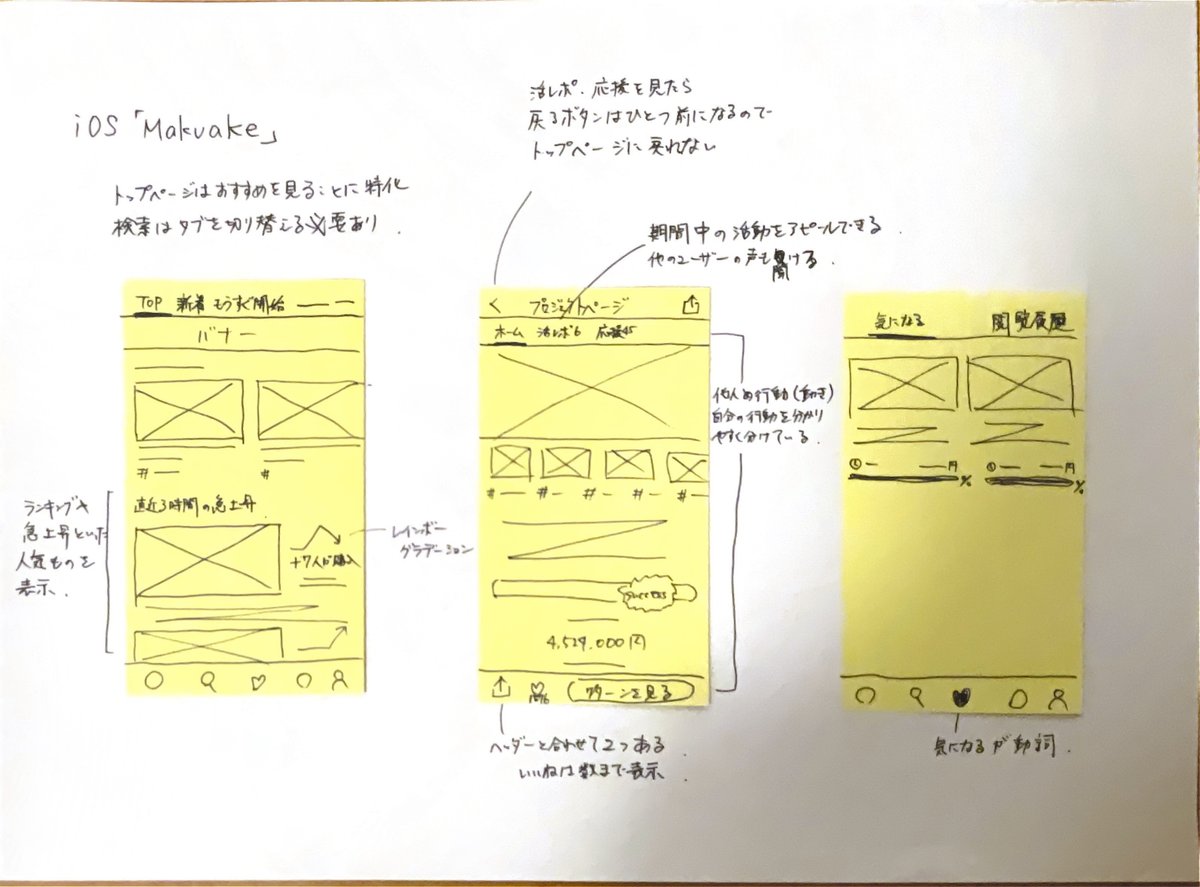 iOS「Makuake」
トップページはおすすめを見ることに特化
検索はタブを切り替える必要あり.
活レポ、応援を見たら
戻るボタンはひとつ前になるので
トップページに戻れない
期間中の活動をアピールできる.
他のユーザーの声も聞ける.
TOP 新着 もうすぐ開始
バナー
#
#
直近3時間の急上昇
+7人が購入
ランキングや
急上昇といった
人気ものを
表示.
レインボー
グラデーション
< プロジェクトページ
ホーム 活レポ6 応援45
# # # # #
success
4,529,000円
リターンを見る
他人の行動(動き)
自分の行動を分かり
やすく分けている.
ヘッダーと合わせて2つある
いいねは数まで表示.
気になる 閲覧履歴
円 円
% %
気になるが動詞.